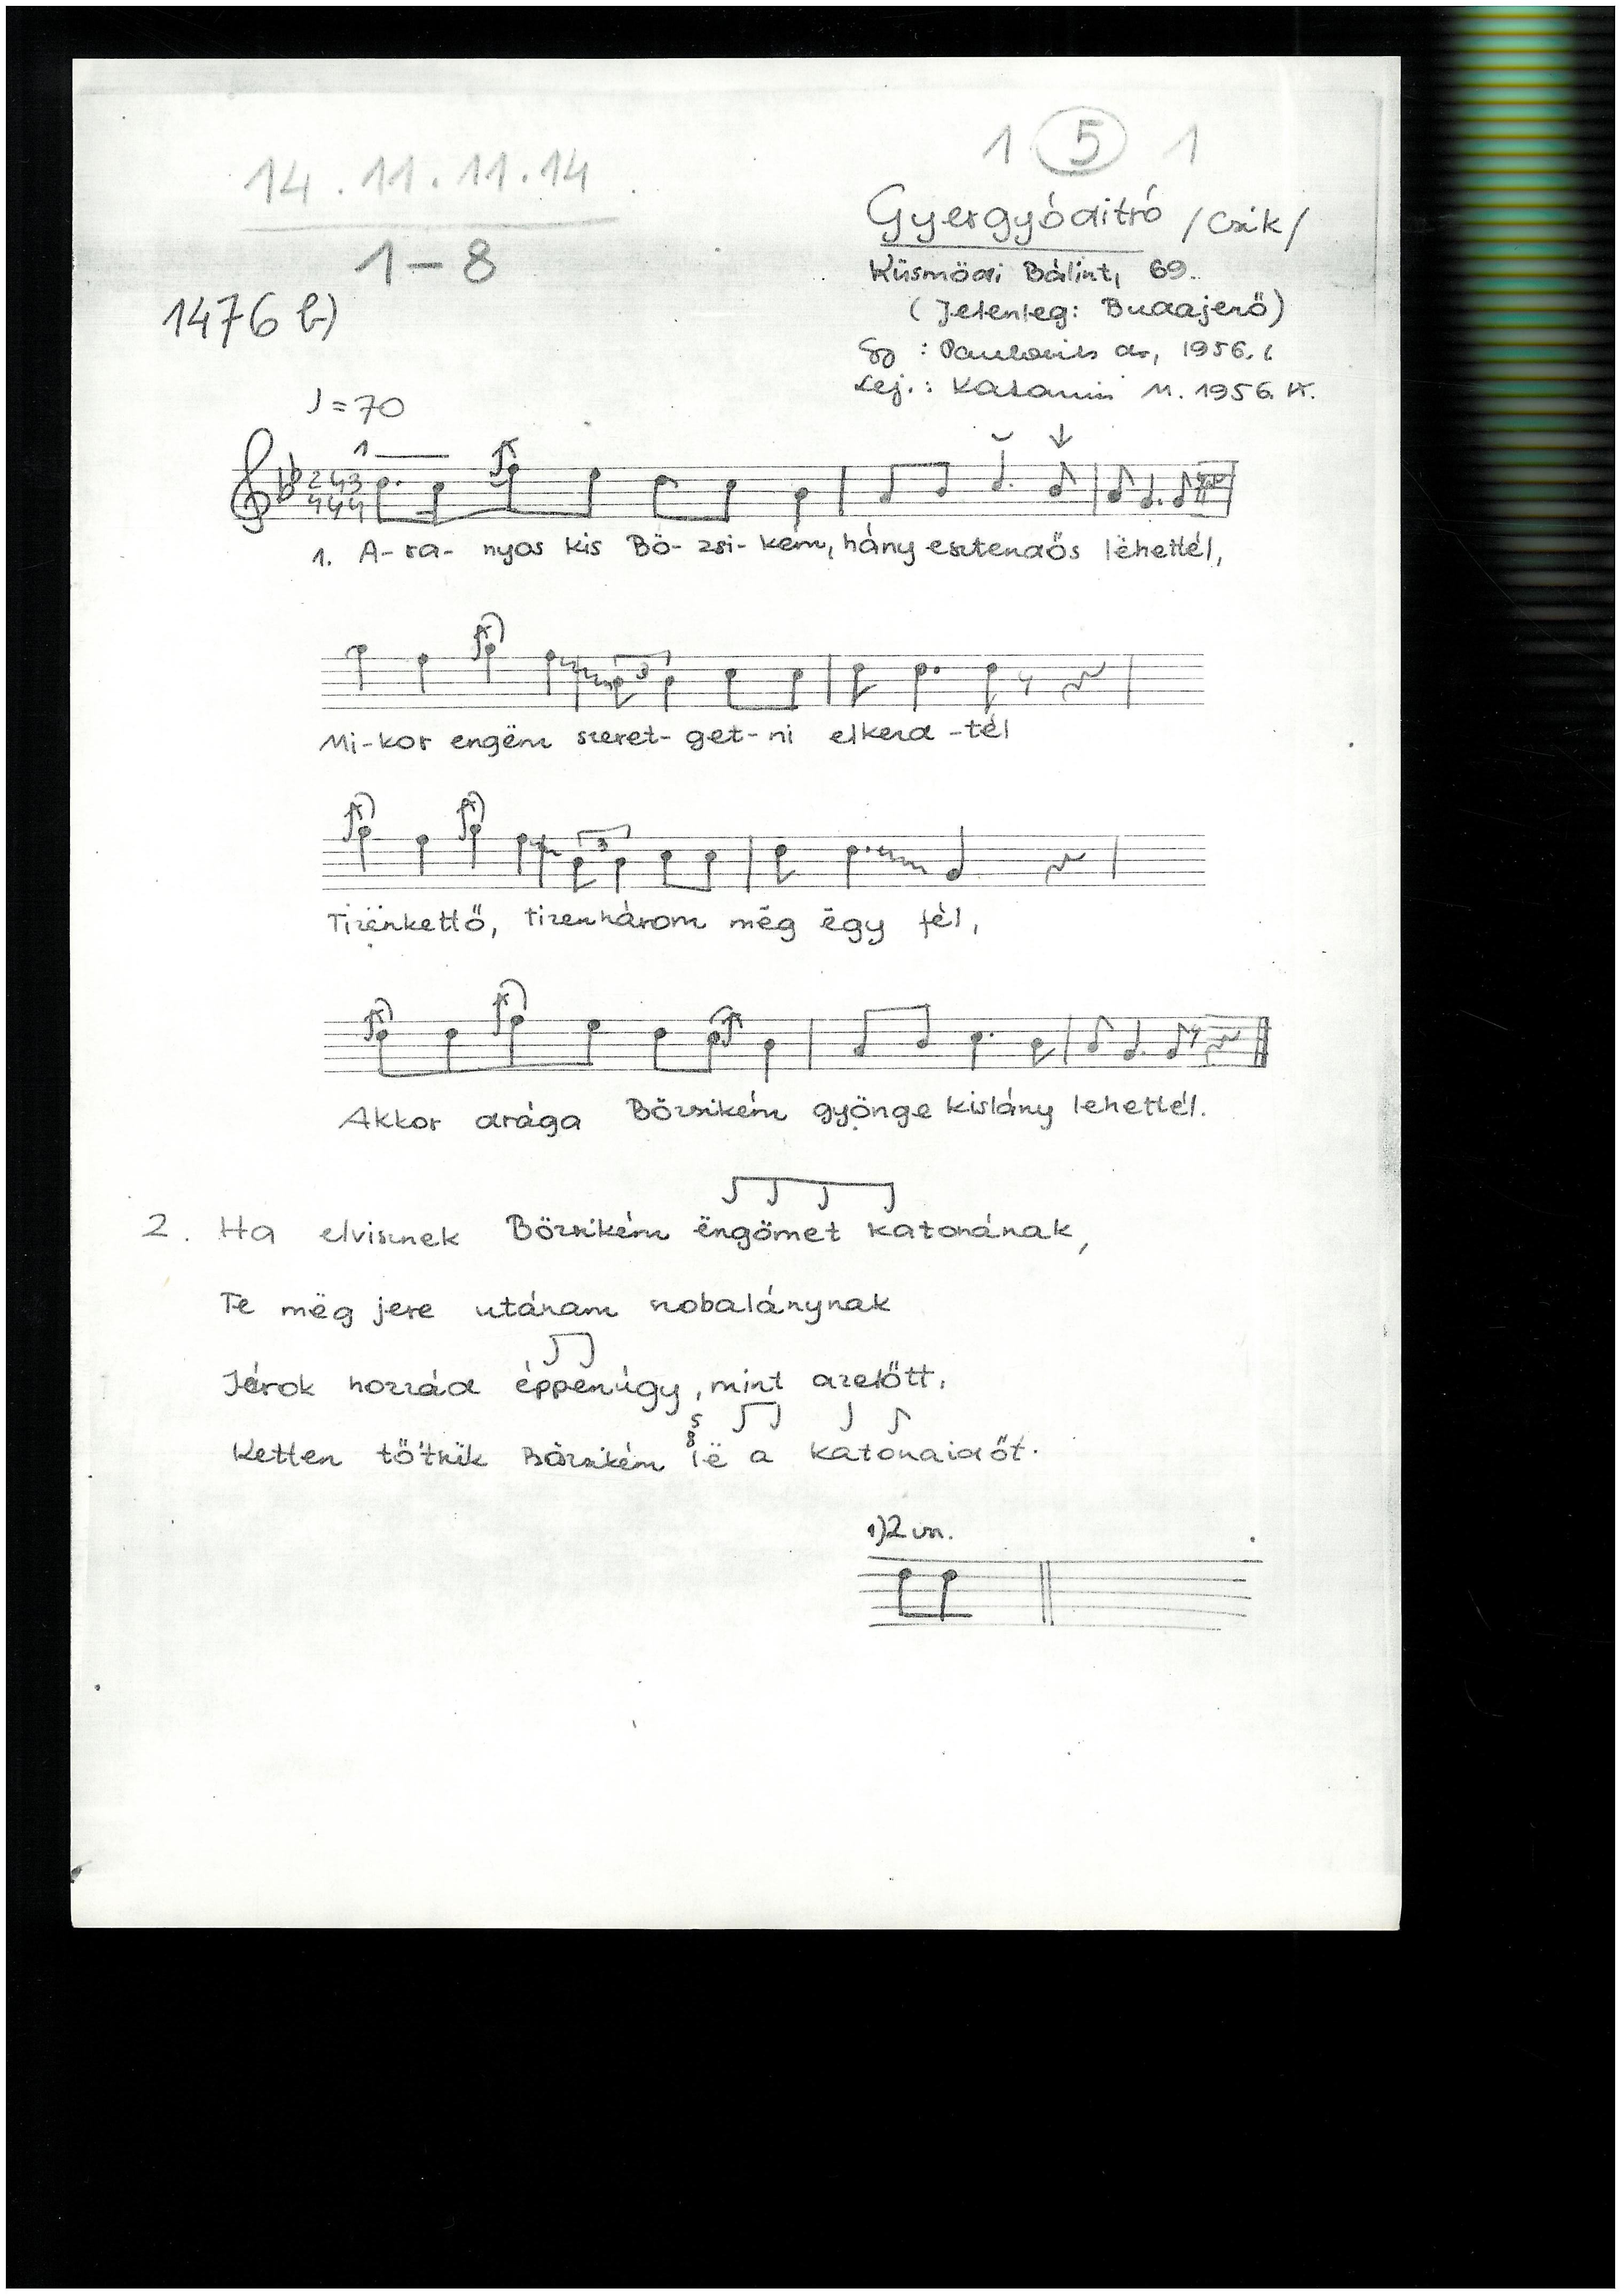 1 5 1
14.11.11.14
1-8
1476 b)
Gyergyóditró /Csík/
Küsmödi Bálint, 69.
(Jelenleg: Budajenő)
Gy : dr, 1956. I.
Lej.: 1956. IX.
♩=70
1
2 4 3
4 4 4
1. A-ra-nyos kis Bö-zsi-kém, hány esztendős lëhettél,
3
Mi-kor engëm szeret-get-ni elkezd-tél
3
Tizënkettő, tizenhárom még ëgy fél,
Akkor drága Bözsikém gyönge kislány lehettél.
2. Ha elvisznek Bözsikém ëngömet katonának,
Te mëg jere utánam szobalánynak
Járok hozzád éppenúgy, mint azelőtt.
5
8
Ketten tőtsük Bözsikém lë a katonaidőt.
1) 2 vsz.